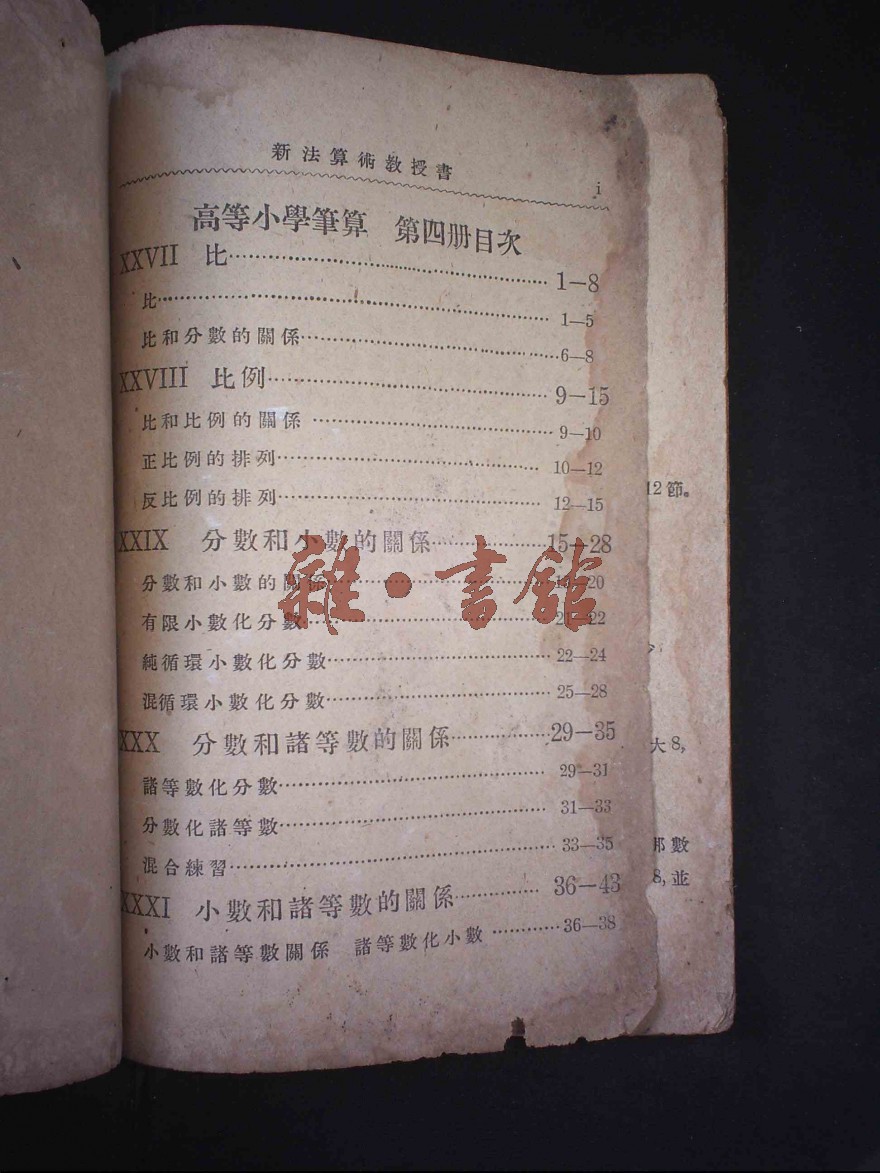 新法算術教授書 i
高等小學筆算 第四册目次
XXVII 比 1—8
比 1—5
比和分數的關係 6—8
XXVIII 比例 9—15
比和比例的關係 9—10
正比例的排列 10—12
反比例的排列 12—15
XXIX 分數和小數的關係 15—28
分數和小數的關係 —20
有限小數化分數 21—22
純循環小數化分數 22—24
混循環小數化分數 25—28
XXX 分數和諸等數的關係 29—35
諸等數化分數 29—31
分數化諸等數 31—33
混合練習 33—35
XXXI 小數和諸等數的關係 36—43
小數和諸等數關係 諸等數化小數 36—38
12節。
大8,
那數
8,並
雜·書館